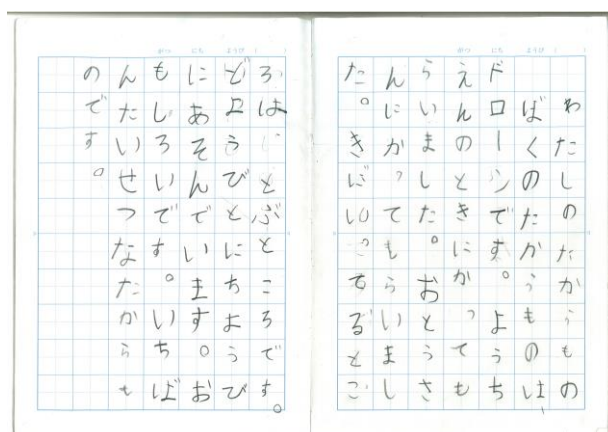 がつ にち ようび ( )
わたしのたからもの
ばくのたからものは
ドローンです。よう ち
えんのときにかっても
らいました。おとうさ
んにかってもらいまし
た。きにいってるとこ
がつ にち ようび ( )
ろは、とぶところです。
どようびとにちようび
にあそんでいます。お
もしろいです。いちば
んたいせつなたからも
のです。